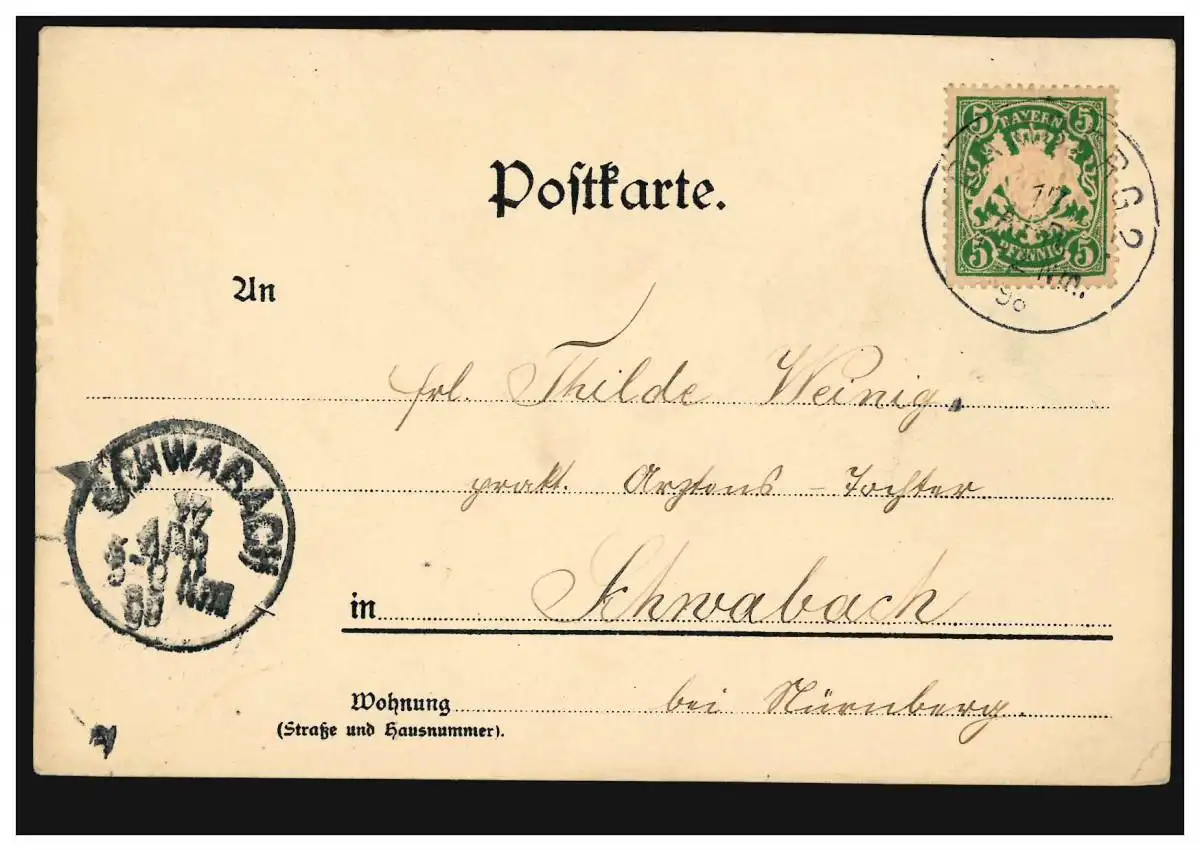 Postkarte.
5 BAYERN 5
5 PFENNIG 5
RG 2
17
Nm.
98
An
Frl. Thilde Weinig,
prakt. Arztens-Tochter
SCHWABACH
Nm
in Schwabach
Wohnung bei Nürnberg.
(Straße und Hausnummer).